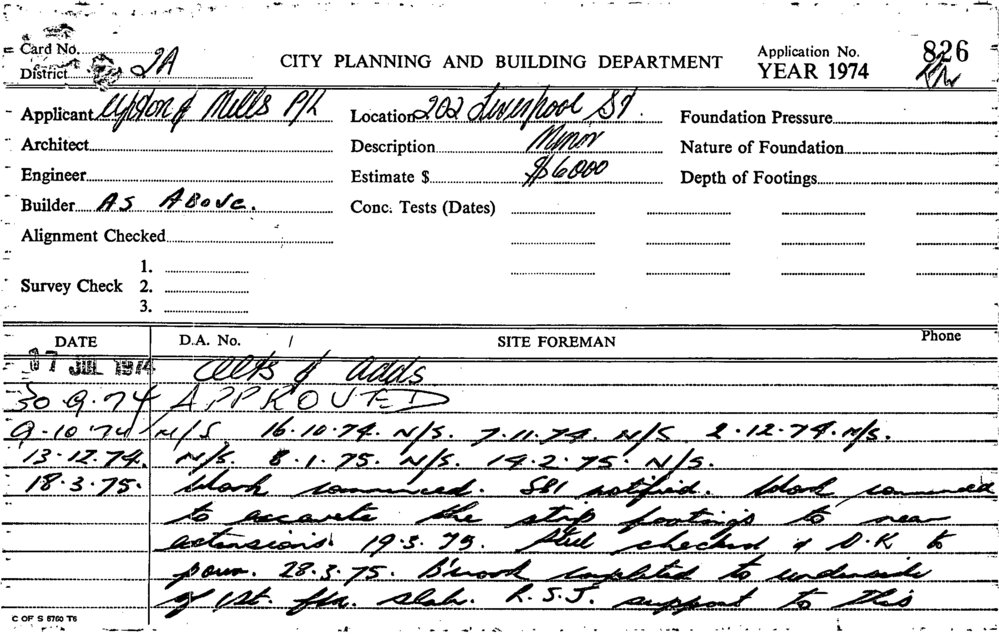 Card No.
District 2A
CITY PLANNING AND BUILDING DEPARTMENT
Application No. 826
YEAR 1974
Applicant & Mills P/L
Location 202 Liverpool St.
Foundation Pressure
Architect
Description Minor
Nature of Foundation
Engineer
Estimate $ $6000
Depth of Footings
Builder AS ABOVE.
Conc. Tests (Dates)
Alignment Checked
1.
Survey Check 2.
3.
DATE D.A. No. / SITE FOREMAN Phone
17 JUL 1974 Alts & adds
30.9.74 APPROVED
9.10.74 N/S. 16.10.74. N/S. 7.11.74. N/S 2.12.74. N/S.
13.12.74. N/S. 8.1.75. N/S. 14.2.75. N/S.
18.3.75. Work commenced. SBI notified. Work commenced
to excavate the strip footings to rear
extensions. 19.3.75. Steel checked & O.K to
pour. 28.3.75. B'work completed to underside
of 1st. flr. slab. R.S.J. support to this
C OF S 5760 T6